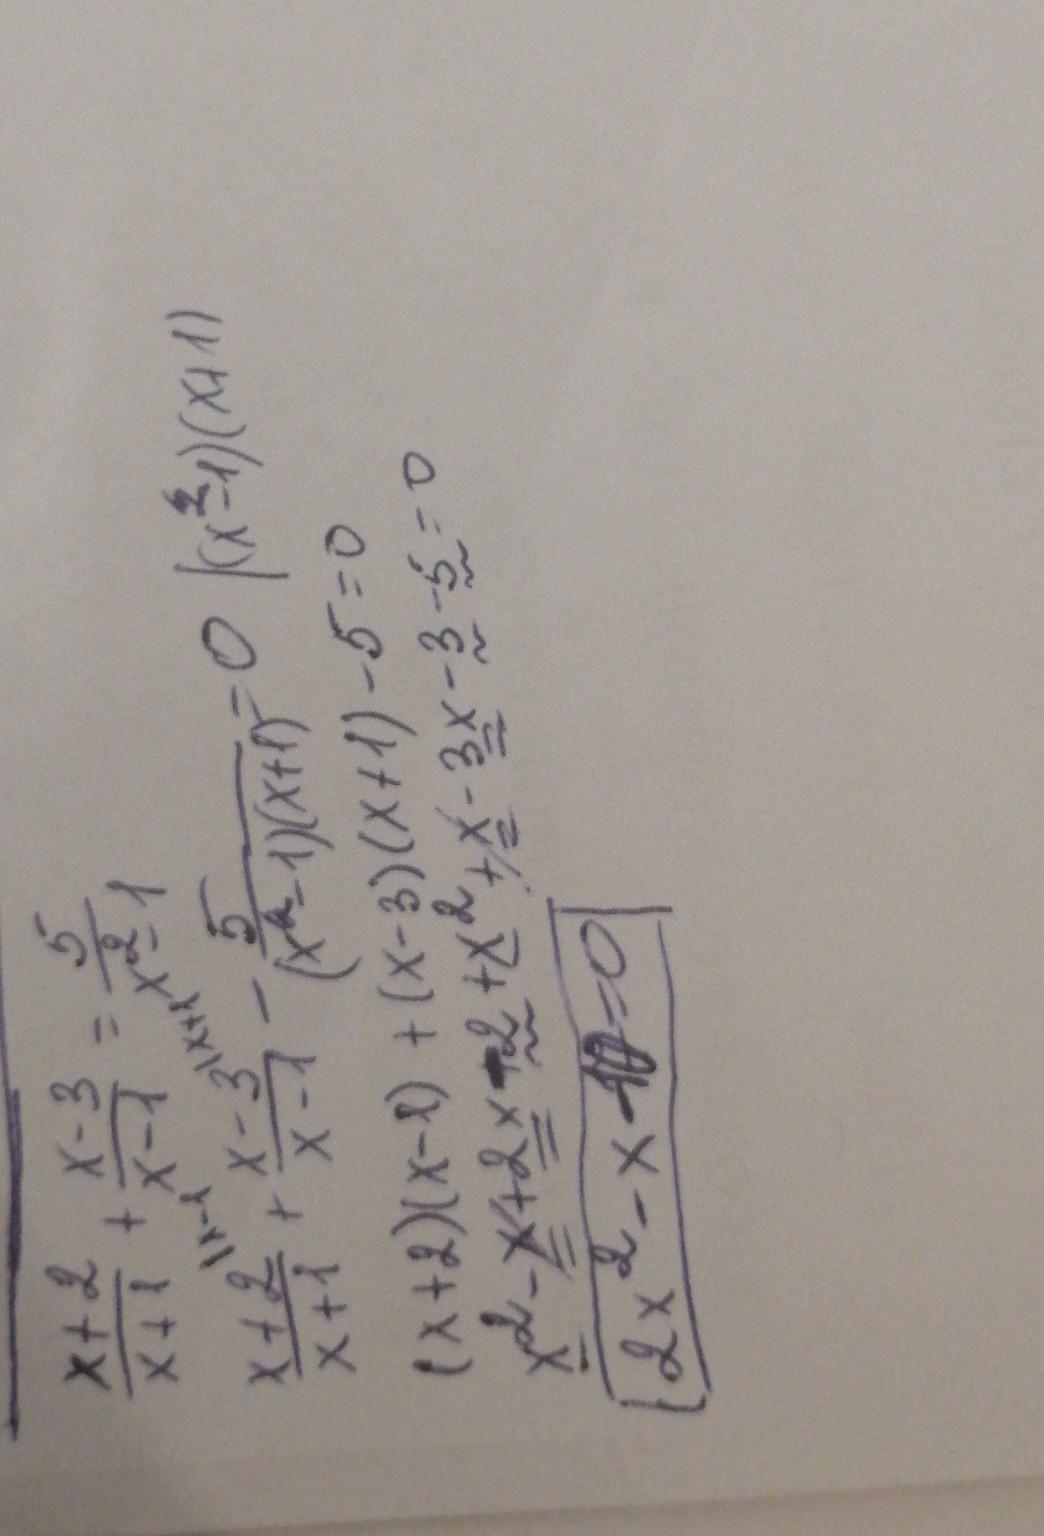 x+2/x+1 + x-3/x-1 = 5/x²-1
x+2/x+1 |x-1 + x-3/x-1 |x+1 - 5/(x²-1)(x+1) = 0 |(x²-1)(x+1)
(x+2)(x-1) + (x-3)(x+1) - 5 = 0
x² - x + 2x - 2 + x² + x - 3x - 3 - 5 = 0
2x² - x - 10 = 0